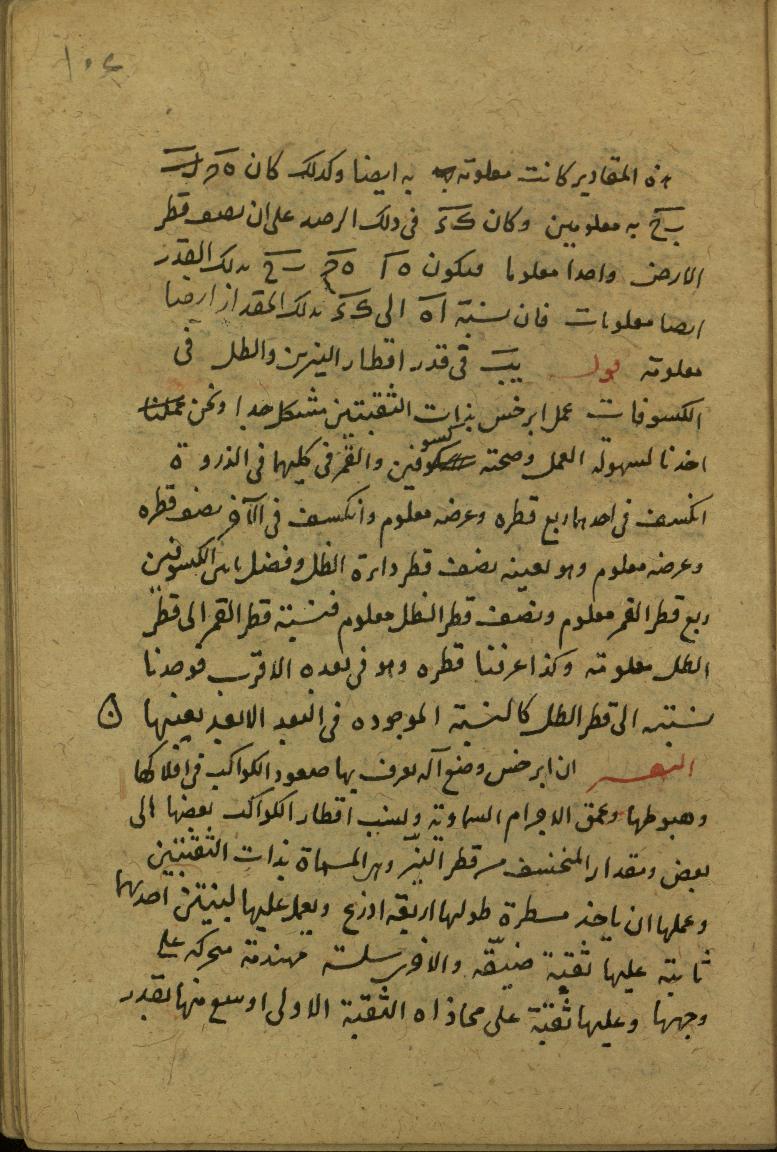 ١٠٤
هذه المقادير كانت معلومة به ايضا وكذلك كان ه
به معلومين وكان ك ء فى ذلك الرصد على ان نصف قطر
الارض واحدا معلوما فيكون ه ا بذلك القدر
ايضا معلومات فان نسبة ا ه الى ك ء بذلك المقدار ايضا
معلومة قوله يب فى قدر اقطار النيرين والظل فى
الكسوفات عمل ابرخس بذات الثقبتين مشكل جدا ونحن
اخذنا لسهولة العمل وصحته كسوفين والقمر فى كليهما فى الذروة
انكسف فى احدهما ربع قطره وعرضه معلوم وانكسف فى الآخر نصف قطره
وعرضه معلوم وهو بعينه نصف قطر دائرة الظل وفضل ما بين الكسوفين
ربع قطر القمر معلوم ونصف قطر الظل معلوم فنسبة قطر القمر الى قطر
الظل معلومة وكذا عرفنا قطره وهو فى بعده الاقرب فوجدنا
نسبته الى قطر الظل كالنسبة الموجوده فى البعد الابعد بعينها
التفسير ان ابرخس وضع آلة يعرف بها صعود الكواكب فى افلاكها
وهبوطها وعمق الاجرام السماوية ونسب اقطار الكواكب بعضها الى
بعض ومقدار المنخسف من قطر النير وهى المسماة بذات الثقبتين
وعملها ان ياخذ مسطرة طولها اربعة اذرع ويعمل عليها لبنتين احديهما
ثابتة عليها ثقبة ضيقة والاخرى سلسة مهندمة متحركة على
وجهها وعليها ثقبة على محاذاه الثقبة الاولى اوسع منها بقدر